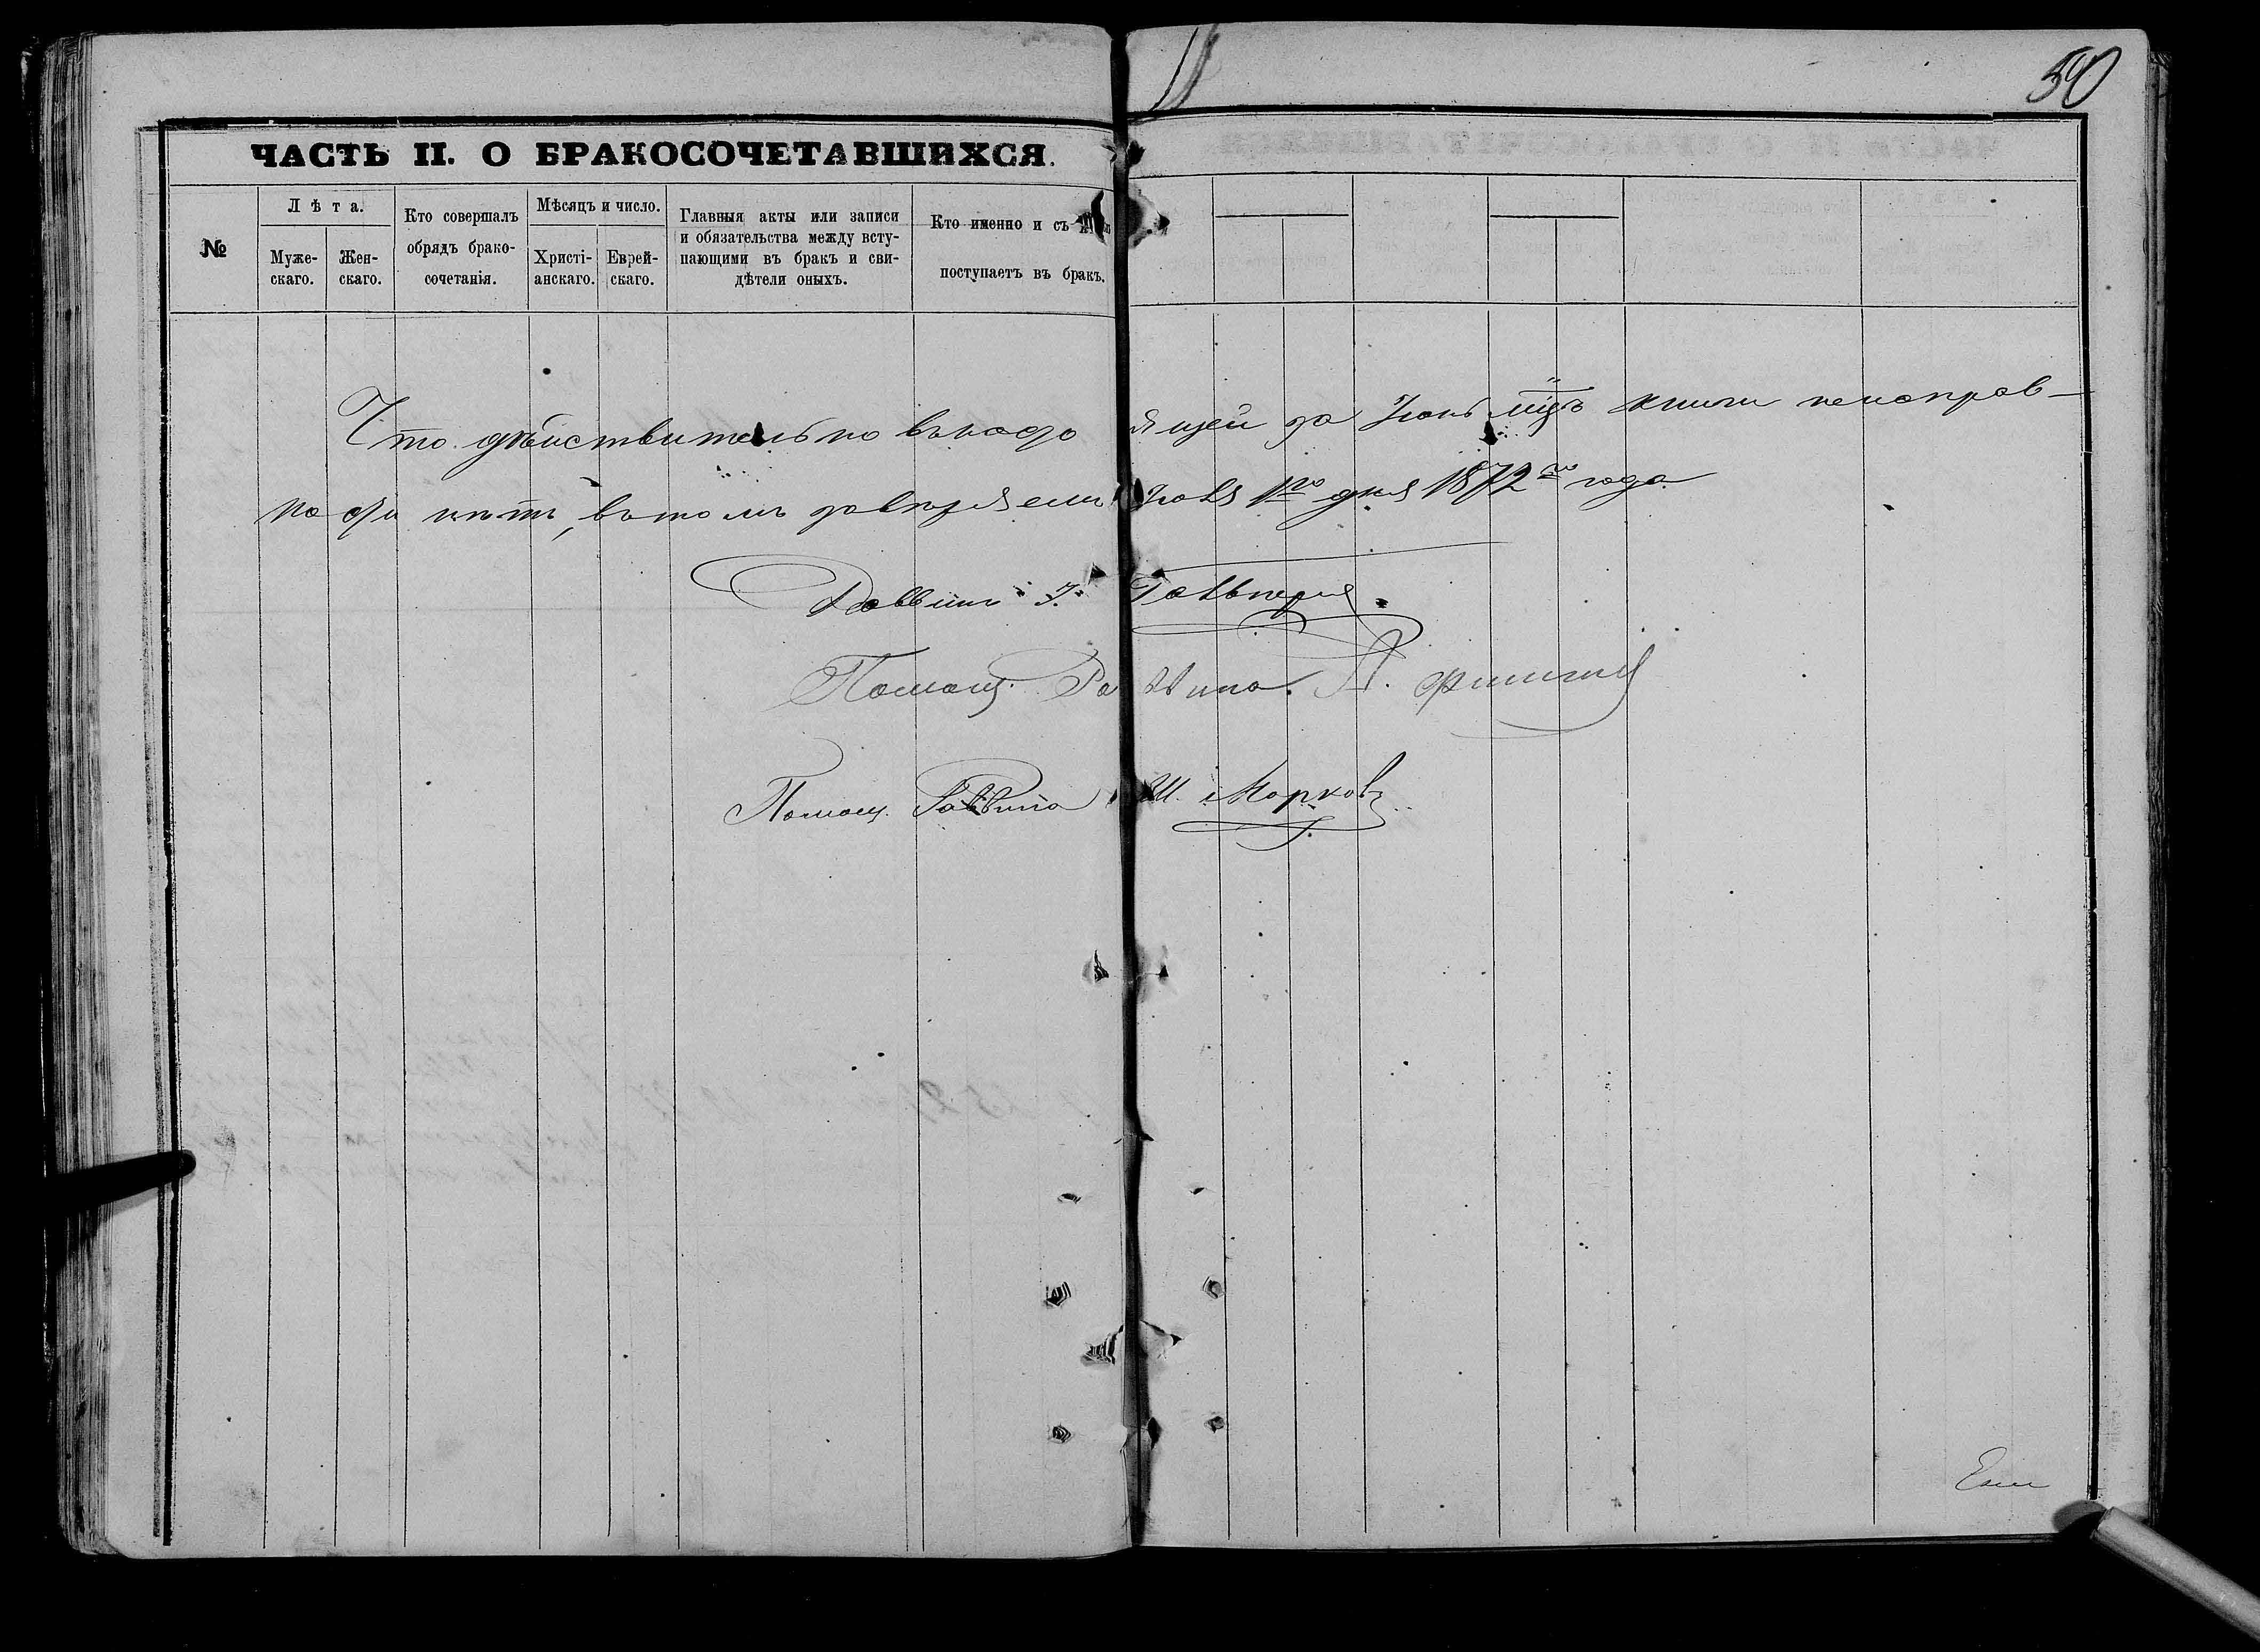 50
ЧАСТЬ II. О БРАКОСОЧЕТАВШИХСЯ.
№
Лѣта.
Муже-
скаго.
Жен-
скаго.
Кто совершалъ
обрядъ брако-
сочетанія.
Мѣсяцъ и число.
Христі-
анскаго.
Еврей-
скаго.
Главныя акты или записи
и обязательства между всту-
пающими въ бракъ и сви-
дѣтели оныхъ.
Кто именно и съ
поступаетъ въ бракъ.
Что дѣйствительно въ сей за Іюнь мцъ книги неисправ-
ности нѣтъ, въ томъ завѣряемъ Іюля 1го дня 1872го года
Раввинъ І. Гальперня
Помощ. Раввина.
Помощ. Раввина Ш. Марковъ